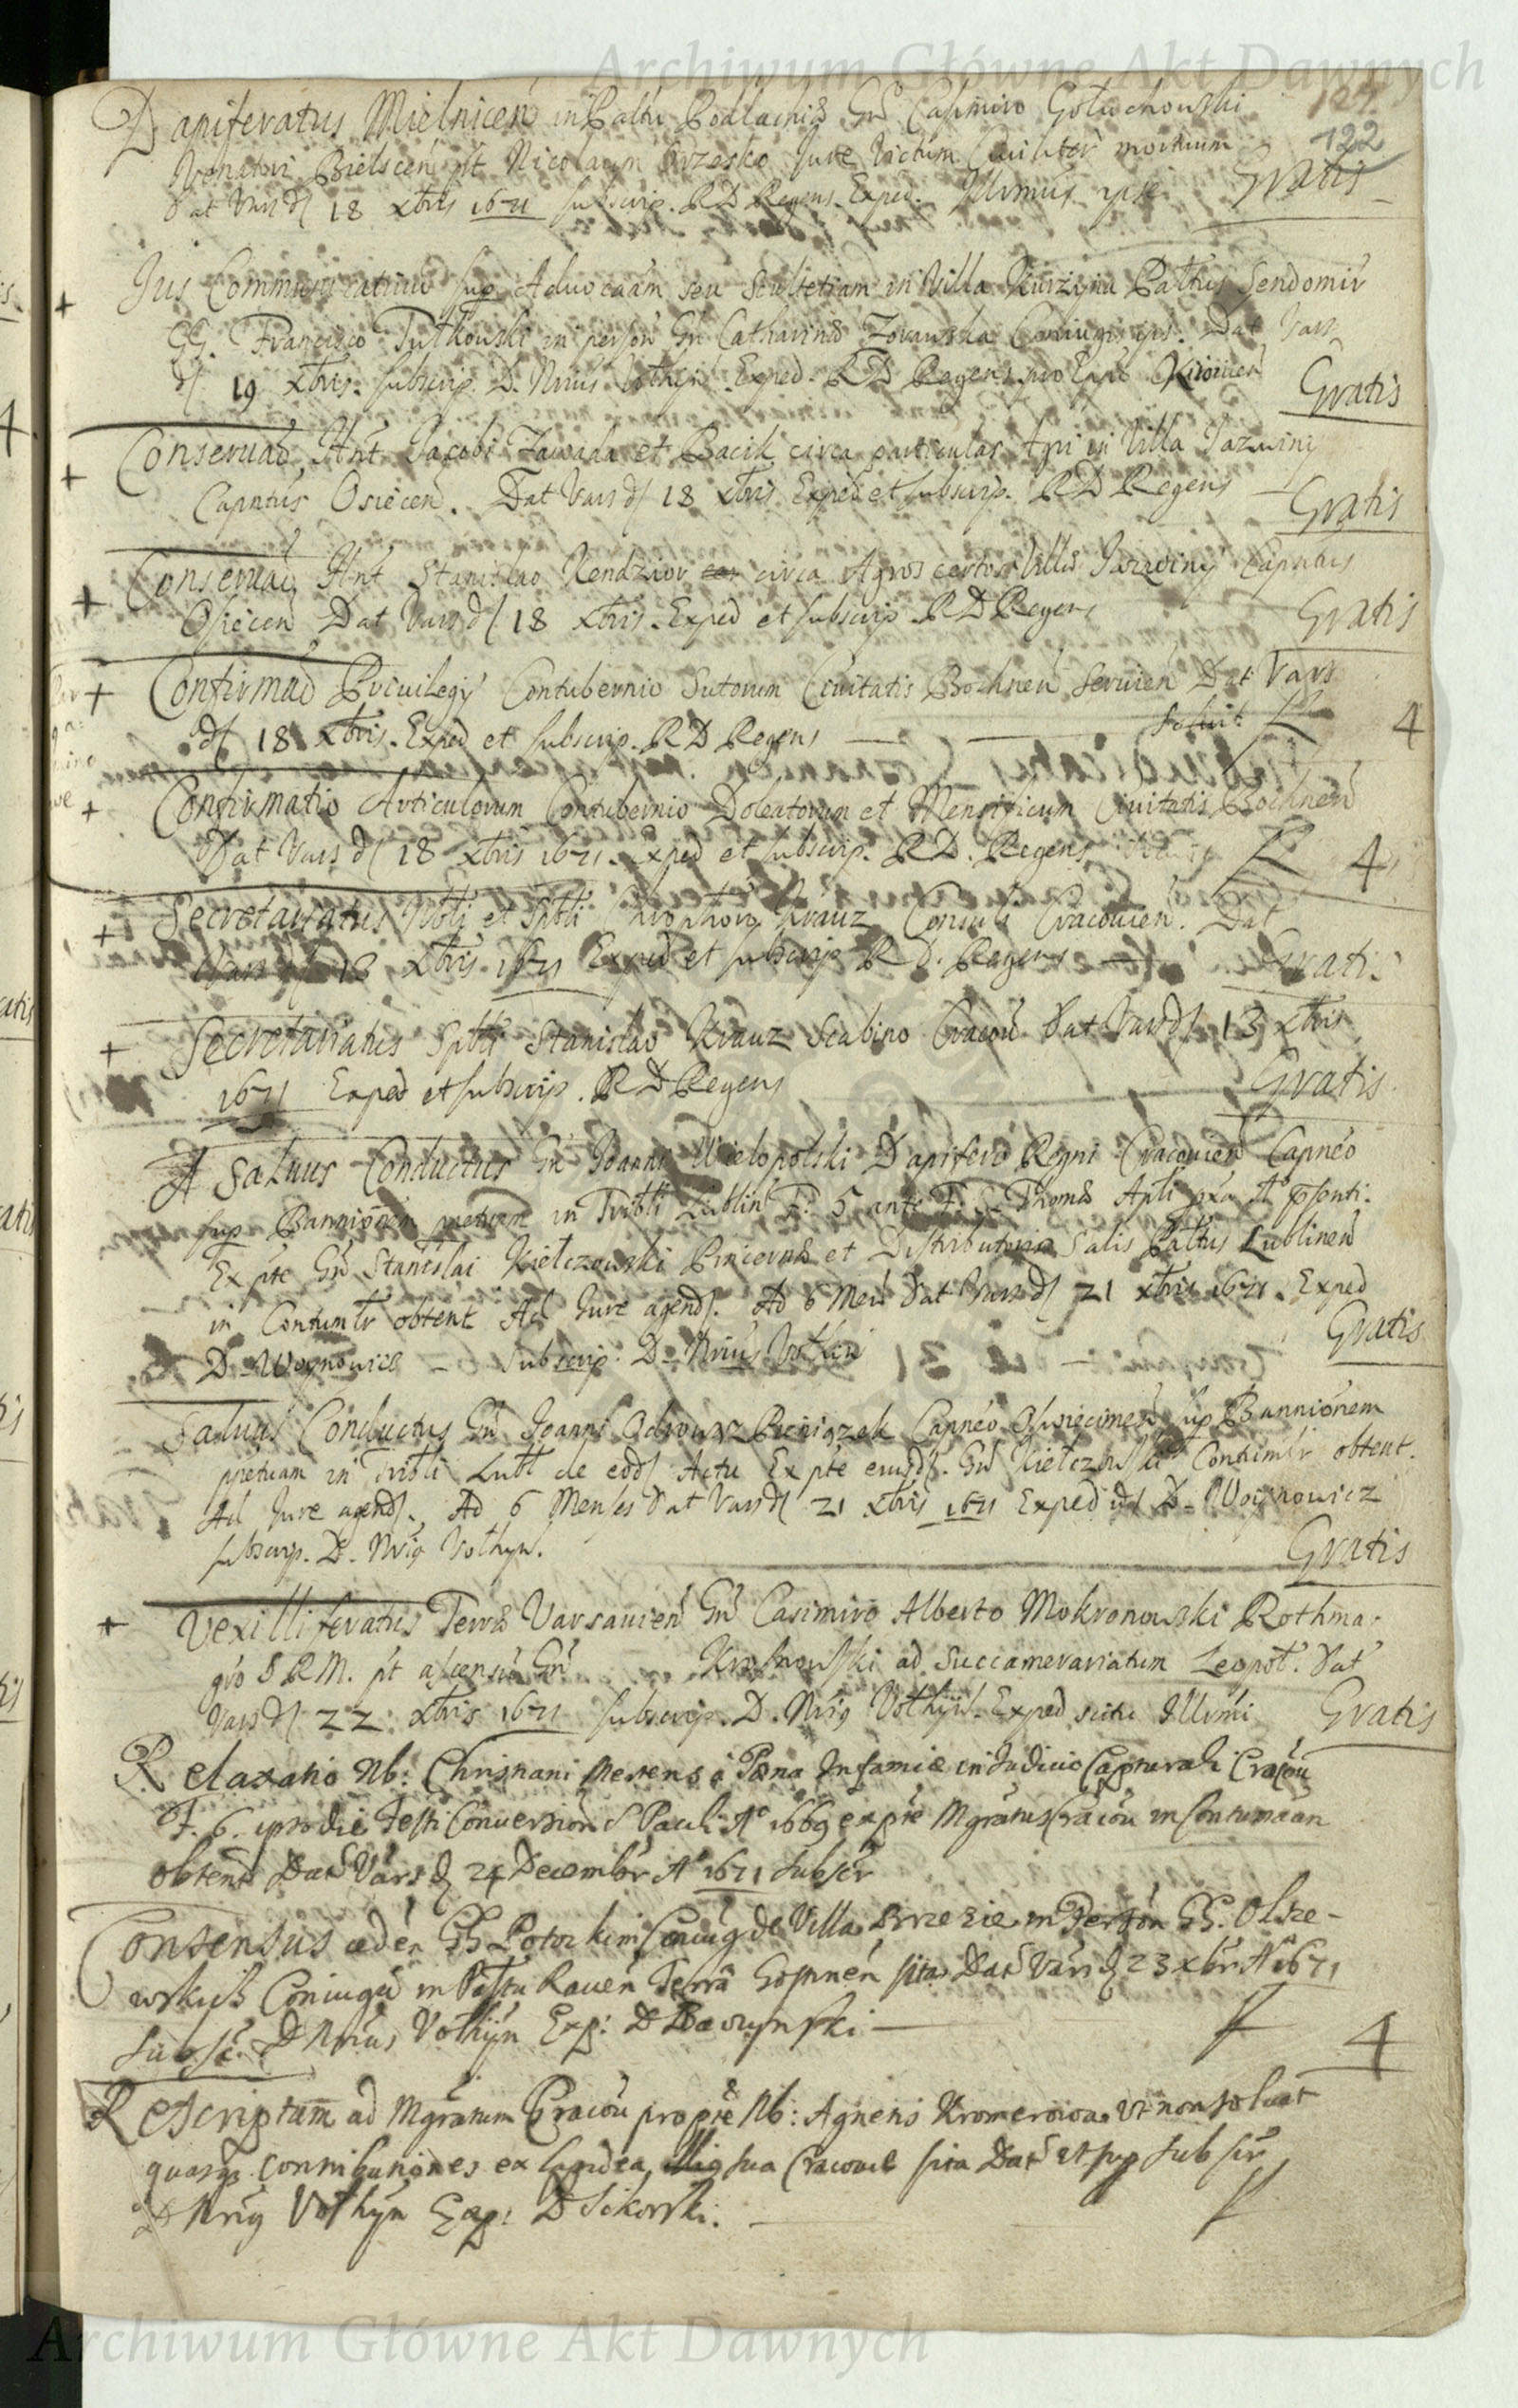 Archiwum Główne Akt Dawnych
124
122
Dapiferatus Mielnicen in Paltu Podlachiæ Gn̄ Casimiro Gołuchowski
Venatori Bielscen pt Nicolaum Jure victum Ciuiliter mortuum
Dat Vars d 18 xbris 1671 subscrip. RD Regens Exped. Illrmus ipse Gratis
Jus Communicatiuū sup Aduocaām seu Scultetiam in Villa Paltus Sendomir
GG. Francisco Tutkowski in person Gn̄ Catharinæ Zorawska Coniugis ips. Dat Vars
d 19 xbris. subscrip. D. Nrius Vothyn. Exped. RD Regens pro Eppo Kiiouien Gratis
Conseruaō Hnt Jacobi Zawada et Bacik circa particulas Agri in Villa Jazwiny
Capntus Osiecen. Dat Vars d 18 xbris Exped et subscrip. RD Regens Gratis
Conseruaō Hnt Stanislao Kendzior circa Agros certos Villæ Jazwiny Capntus
Osiecen Dat Vars d 18 xbris. Exped et subscrip. RD Regens Gratis
Confirmaō Priuilegÿ Contubernio Sutorum Ciuitatis Bochnen seruien Dat Vars
d 18 xbris. Exped et subscrip. RD Regens — soluit fl 4
Confirmatio Articulorum Contubernio Doleatorum et Mensificum Ciuitatis Bochnen
Dat Vars d 18 xbris 1671. Exped et subscrip. RD. Regens fl 4
Secretariatus Nbli et Spbli Chrophoro Krauz Consuli Cracouien. Dat
Vars d 13 xbris 1671 Exped et subscrip RD. Regens — Gratis
Secretariatus Spbli Stanislao Krauz Scabino Cracou Dat Vars d 13 xbris
1671 Exped et subscrip. RD Regens Gratis
A Saluus Conductus Gn̄ Joanni Wielopolski Dapifero Regni Cracouien Capneo
sup Bannionem pretium in Tribli Lublin F. 5 ante F. S. Thomæ Apli pxa A° psenti.
Ex pte Gn̄ Stanislai Kiełczewski Pincernæ et Distributoris Salis Paltus Lublinen
in Contumtr obtent Ad Jure agend. Ad 6 Men Dat Vars d 21 xbris 1671. Exped
D. Woynowicz — Subscrip. D. Nrius Vothyn Gratis
Saluus Conductus Gn̄ Joanni Odrowąz Pieniązek Capneo Oswiecimen sup Bannionem
pretium in Tribli Lubl de eod Actu Ex pte eiusd. Gn̄ Kiełczewski Contumtr obtent.
Ad Jure agend., Ad 6 Menses Dat Vars d 21 xbris 1671 Exped id D. Woynowicz
subscrip. D. Nrig Vothyn. Gratis
Vexilliferatus Terræ Varsauien Gn̄ Casimiro Alberto Mokronowski Rothma-
gro S R M. pt ascensū Gn̄ Krosnowski ad Succamerariatum Leopol. Dat
Vars d 22 xbris 1671 subscrip. D. Nrig Vothyn. Exped scitu Illrmi Gratis
Relaxatio Nb: Christiani Mertens a Pœna Infamiæ in Judicio Capturali Cracou
F. 6. ipso die Festi Conuersion S Pauli A° 1669 ex pte Mgratus Cracou in Contumaām
obtent Dat Vars d 24 Decembr A° 1671 Subscr
Consensus œden GG Potockim Coniug de Villa Brzezie in Person GG. Olsze-
wskich Coniugu in Paltu Rauen Terra Gostinen sita Dat Vars d 23 xbr A° 1671
Subsc. D Nrius Vothÿn Exp: D Baczynski — f 4
Rescriptum ad Mgratum Cracou pro pte Nb: Agnetis Kromerowa Vt non soluat
quasqz contributiones ex lapidea sua Cracouiæ sita Dat Vt sup Subscr
D Nrig Vothyn Exp: D Sikorski. — f
Archiwum Główne Akt Dawnych